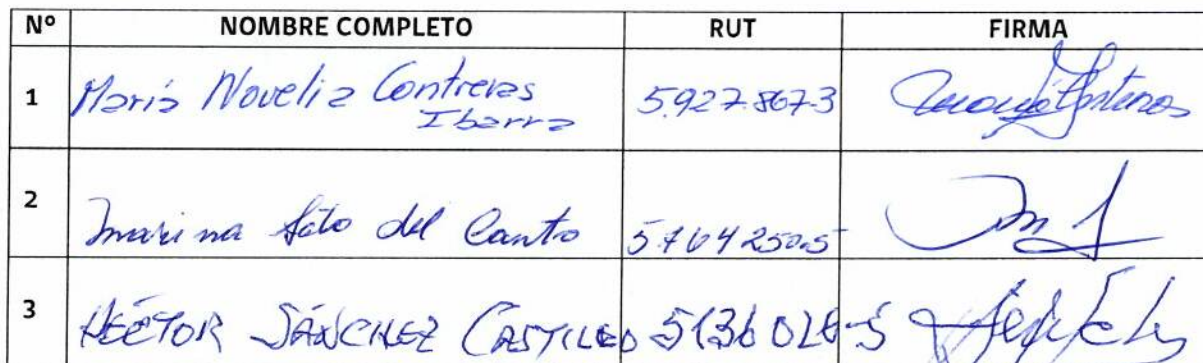 Nº NOMBRE COMPLETO RUT FIRMA
1 María Novelia Contreras Ibarra 5.927.867-3
2 Marina Soto del Canto 5764250-5
3 HÉCTOR SÁNCHEZ CASTILLO